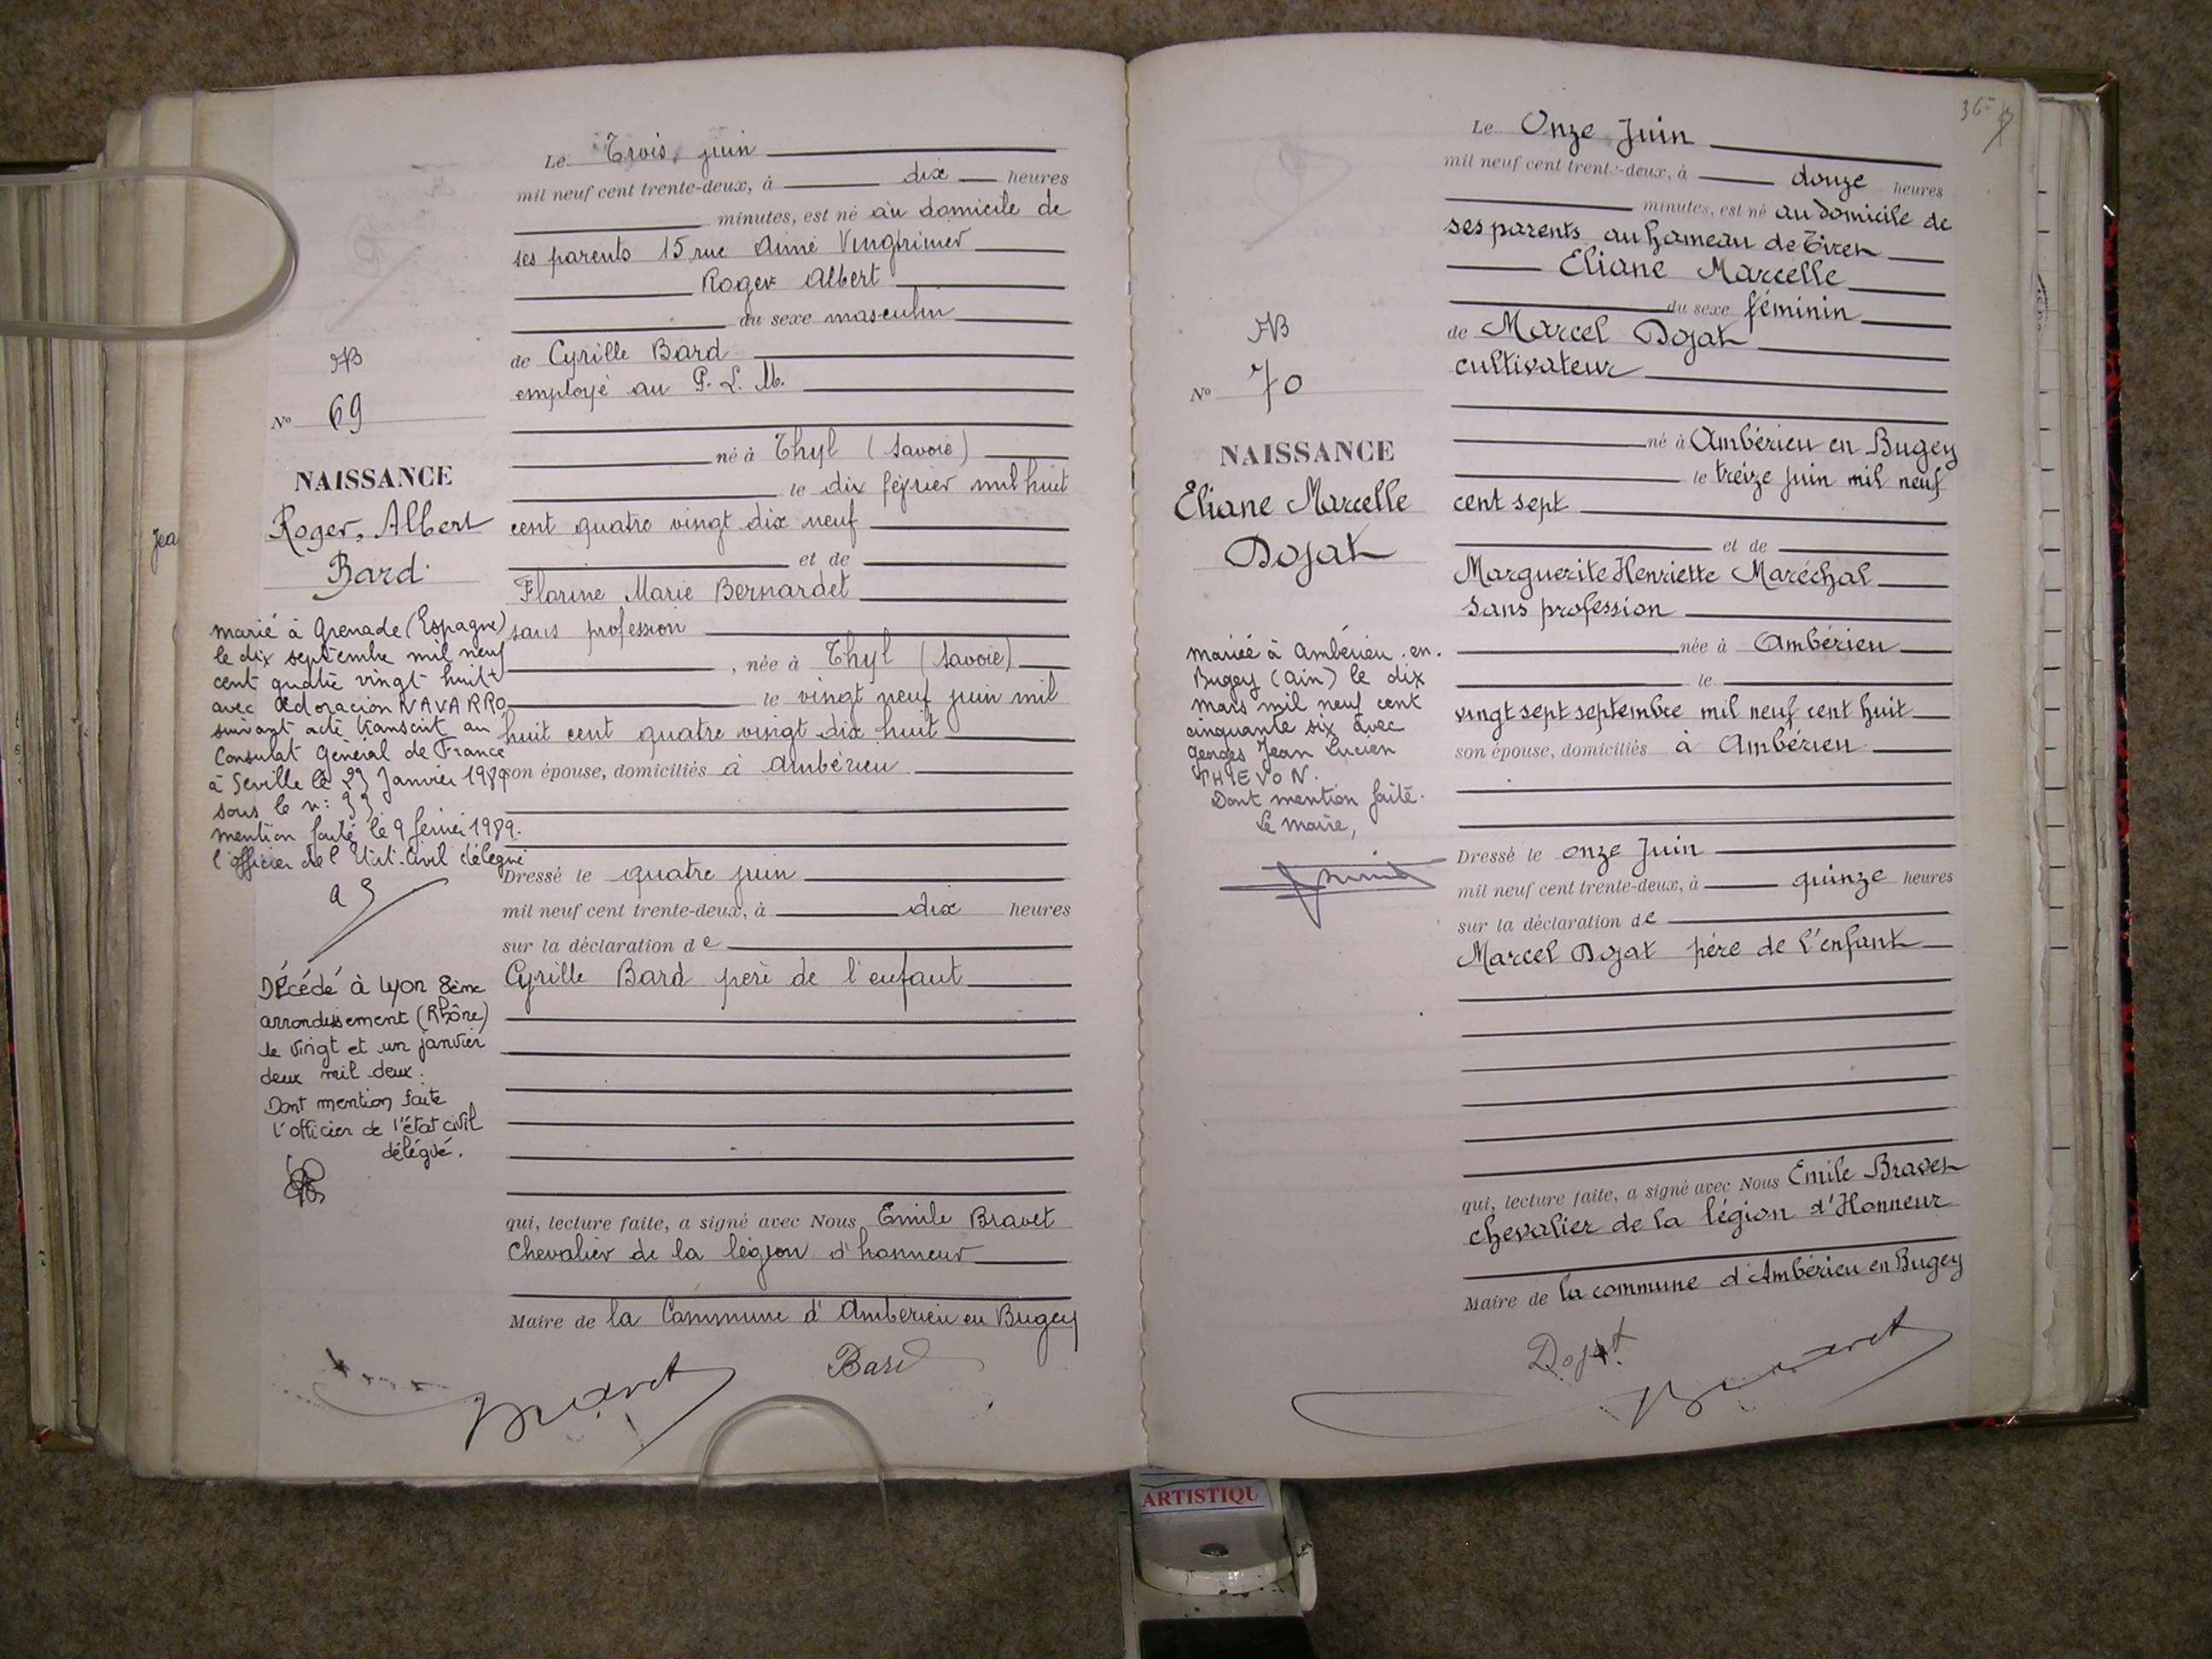 Jea
NB
N° 69
NAISSANCE
Roger, Albert
Bard
marié à Grenade (Espagne)
le dix septembre mil neuf
cent quatre vingt huit
avec Adoracion NAVARRO
suivant acte transcrit au
Consulat Général de France
à Séville le 23 Janvier 1989
sous le n: 33
mention faite le 9 fevrier 1989.
l'officier de l'Etat-Civil délégué
Décédé à Lyon 8ème
arrondissement (Rhône)
le vingt et un janvier
deux mil deux.
Dont mention faite
l'officier de l'état civil
délégué.
Le Trois juin
mil neuf cent trente-deux, à dix heures
minutes, est né au domicile de
ses parents 15 rue Aimé Vingtrinier
Roger Albert
du sexe masculin
de Cyrille Bard
employé au P. L. M.
né à Thyl (Savoie)
le dix février mil huit
cent quatre vingt dix neuf
et de
Florine Marie Bernardet
sans profession
, née à Thyl (Savoie)
le vingt neuf juin mil
huit cent quatre vingt dix huit
son épouse, domiciliés à Ambérieu
Dressé le quatre juin
mil neuf cent trente-deux, à dix heures
sur la déclaration de
Cyrille Bard père de l'enfant
qui, lecture faite, a signé avec Nous Emile Bravet
Chevalier de la légion d'honneur
Maire de la Commune d'Ambérieu en Bugey
Bravet
Bard
36
NB
N° 70
NAISSANCE
Eliane Marcelle
Dojat
mariée à Ambérieu-en-
Bugey (Ain) le dix
mars mil neuf cent
cinquante six avec
Georges Jean Lucien
THIEVON.
Dont mention faite.
Le Maire,
Le Onze Juin
mil neuf cent trente-deux, à douze heures
minutes, est né au domicile de
ses parents au hameau de Tiret
Eliane Marcelle
du sexe féminin
de Marcel Dojat
cultivateur
né à Ambérieu en Bugey
le treize juin mil neuf
cent sept
et de
Marguerite Henriette Maréchal
sans profession
née à Ambérieu
le
vingt sept septembre mil neuf cent huit
son épouse, domiciliés à Ambérieu
Dressé le onze Juin
mil neuf cent trente-deux, à quinze heures
sur la déclaration de
Marcel Dojat père de l'enfant
qui, lecture faite, a signé avec Nous Emile Bravet
chevalier de la légion d'Honneur
Maire de la commune d'Ambérieu en Bugey
Dojat
Bravet
ARTISTIQU